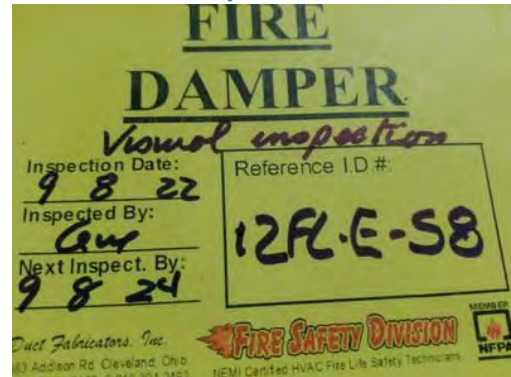 FIRE
DAMPER
Visual inspection
Inspection Date:
9 8 22
Inspected By:
Next Inspect. By:
9 8 24
Reference I.D.#:
12FL-E-S8
Duct Fabricators, Inc.
Addison Rd. Cleveland, Ohio
FIRE SAFETY DIVISION
NEMI Certified HVAC Fire Life Safety Technicians
MEMBER
NFPA